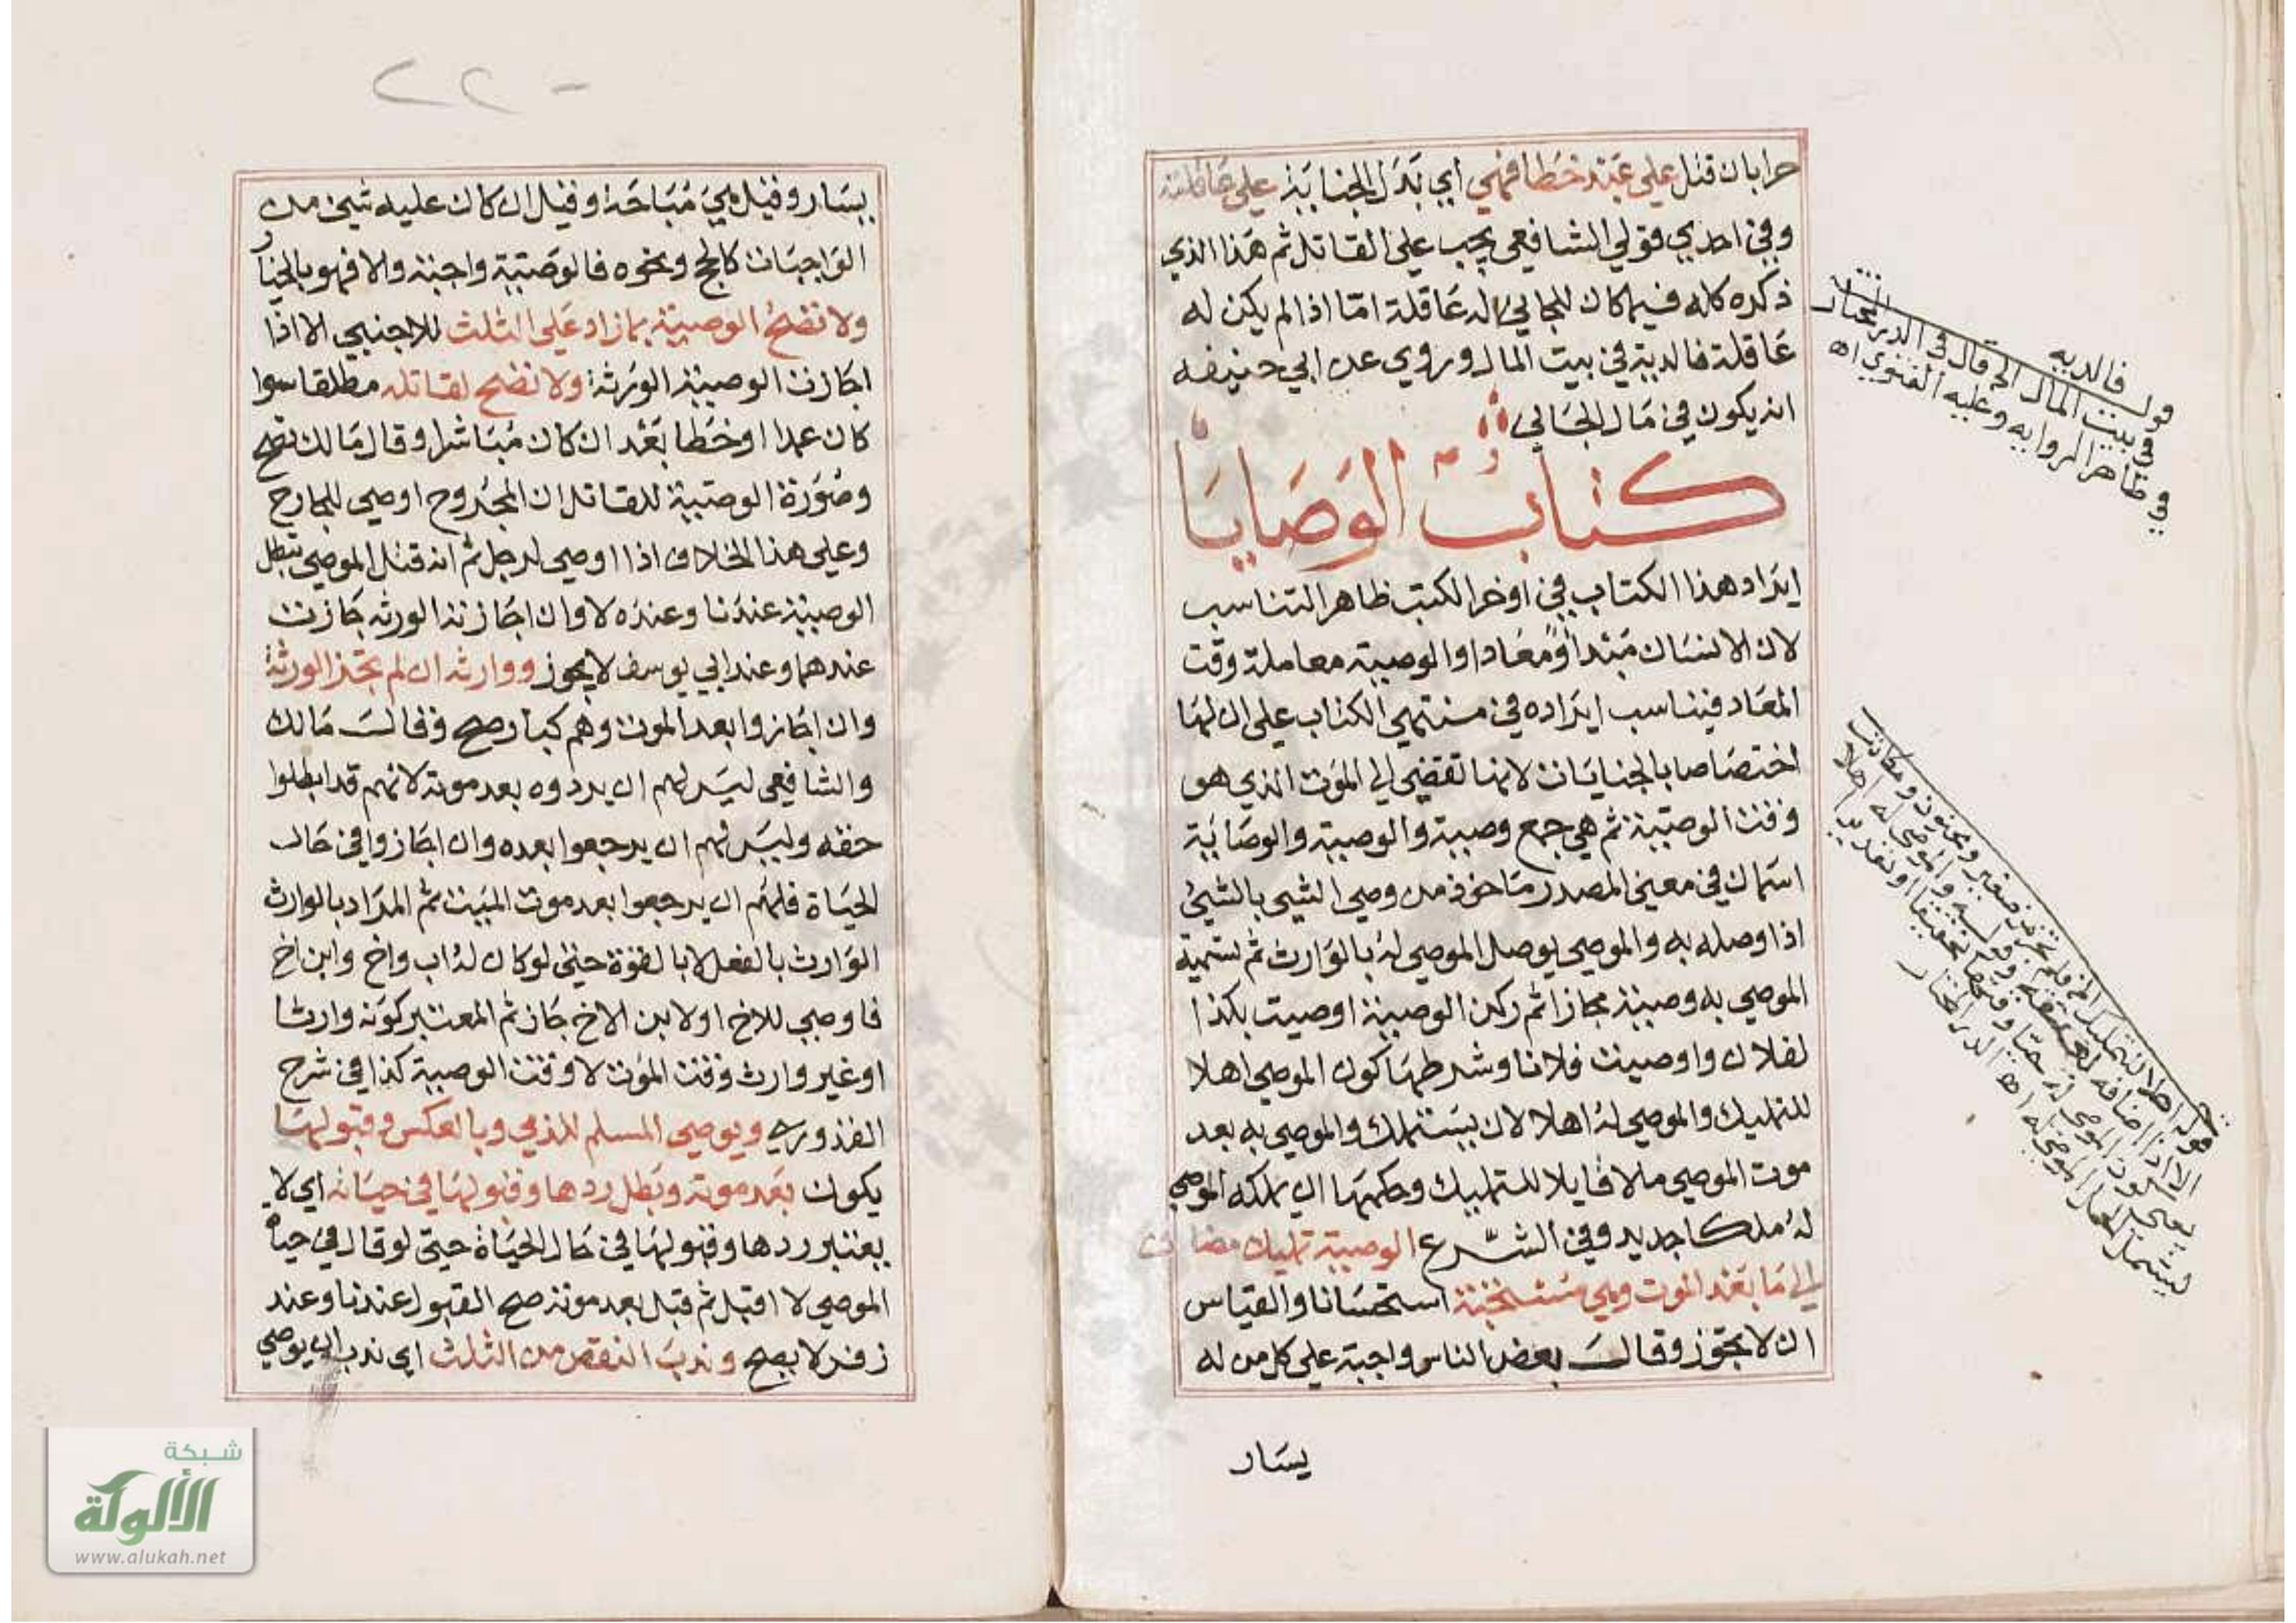 حرابان قتل على عبد خطا فهي اي بدل الجناية على عاقلته
وفي احدى قولي الشافعي يجب على القاتل ثم هذا الذي
ذكره كله فيما كان للجاني له عاقلة اما اذا لم يكن له
عاقلة فالدية في بيت المال وروي عن ابي حنيفه
انه يكون في مال الجاني
كتاب الوصايا
ايراد هذا الكتاب في اوخر الكتب ظاهر التناسب
لان الانسان مبتدا ومعادا والوصية معاملة وقت
المعاد فيناسب ايراده في منتهي الكتاب على ان لها
اختصاصا بالجنايات لانها تفضي الي الموت الذي هو
وقت الوصية ثم هي جمع وصية والوصية والوصاية
اسمان في معنى المصدر ماخوذ من وصي الشيي بالشيئ
اذا وصله به والموصي يوصل الموصي له بالوارث ثم تسمية
الموصي به وصية مجازا ثم ركن الوصية اوصيت بكذا
لفلان واوصيت فلانا وشرطها كون الموصي اهلا
للتمليك والموصي له اهلا لان يستملك والموصي به بعد
موت الموصي ملا قابلا للتمليك وحكمها ان يملكه الموصي
له ملكا جديد وفي الشرع الوصية تمليك مضاف
الي ما بعد الموت وهي مستحبة استحسانا والقياس
ان لا يجوز وقالت بعض الناس واجبة على كل من له
يسار
قوله فالديه
في بيت المال الخ قال في الدر المختار
في ظاهر الروايه وعليه الفتوي اه
قوله اهلا للتمليك الخ فلم تجز من صغير ومجنون ومكاتب
الا اذا اضافه لعتقه
اه الدر المختار
٢٢٠
يسار وقيل هي مباحة وقيل ان كان عليه شيئ من
الواجبات كالحج ونحوه فالوصية واجبة والا فهو بالخيار
ولا تصح الوصية بما زاد على الثلث للاجنبي الا اذا
اجازت الوصية الورثة ولا تصح لقاتله مطلقا سوا
كان عمدا او خطا بعد ان كان مباشرا وقال مالك تصح
وصورة الوصية للقاتل ان المجروح اوصي للجارح
وعلى هذا الخلاف اذا اوصي لرجل ثم انه قتل الموصي تبطل
الوصية عندنا وعنده لا وان اجازته الورثه جازت
عندهما وعند ابي يوسف لا يجوز ووارثه ان لم تجز الورثة
وان اجازوا بعد الموت وهم كبار صح وقالت مالك
والشافعي ليس لهم ان يردوه بعد موته لانهم قد ابطلوا
حقه وليس لهم ان يرجعوا بعده وان اجازوا في حال
الحياة فلهم ان يرجعوا بعد موت الميت ثم المراد بالوارث
الوارث بالفعل لا بالقوة حتى لو كان له اب واخ وابن اخ
فاوصي للاخ او لابن الاخ جاز ثم المعتبر كونه وارثا
او غير وارث وقت الموت لا وقت الوصية كذا في شرح
القدوري ويوصي المسلم للذمي وبالعكس وقبولها
يكون بعد موته وبطل ردها وقبولها في حياته اي لا
يعتبر ردها وقبولها في حال الحياة حتى لو قال في حياة
الموصي لا اقبل ثم قبل بعد موته صح القبول عندنا وعند
زفر لا يصح وندب النقص من الثلث اي ندب ان يوصي
شبكة
الألوكة
www.alukah.net